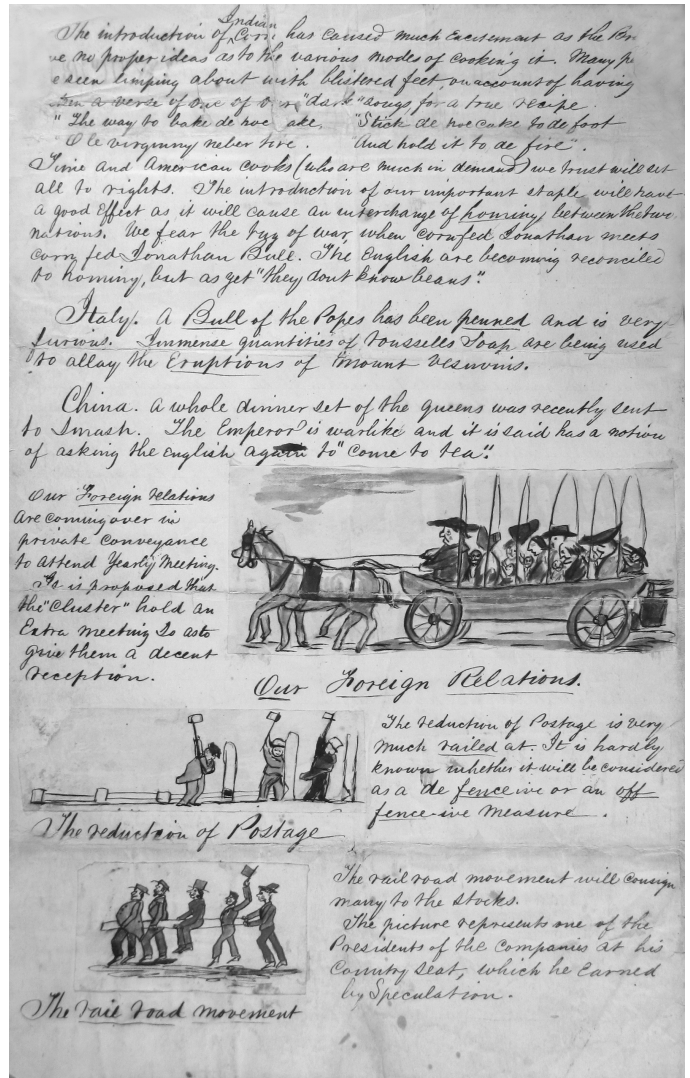 The introduction of Indian Corn has caused much Excitement as the Br
ve no proper ideas as to the various modes of cooking it. Many pe
e seen limping about with blistered feet, on account of having
a verse of one of our "dark" songs for a true recipe.
"The way to bake de hoe ake, "Stick de hoe cake to de foot
Ole virginny neber tire. And hold it to de fire".
Time and American cooks (who are much in demand) we trust will set
all to rights. The introduction of our important staple will have
a good Effect as it will cause an interchange of hominy between the two
nations. We fear the tug of war when corn fed Jonathan meets
corn fed Jonathan Bull. The English are becoming reconciled
to hominy, but as yet "they dont know beans".
Italy. A Bull of the Popes has been penned and is very
furious. Immense quantities of Roussells Soap are being used
to allay the Eruptions of Mount Vesuvius.
China. A whole dinner set of the queens was recently sent
to Smash. The Emperor is warlike and it is said has a notion
of asking the English again to "come to tea".
Our Foreign relations
are coming over in
private conveyance
to attend Yearly Meeting.
It is proposed that
the "Cluster" hold an
Extra meeting So as to
give them a decent
reception.
Our Foreign Relations.
The reduction of Postage is very
much railed at. It is hardly
known whether it will be considered
as a de fence ive or an off
fence-ive measure.
The reduction of Postage
The rail road movement will consign
many to the Stocks.
The picture represents one of the
Presidents of the Companies at his
Country Seat, which he Earned
by Speculation.
The rail road movement